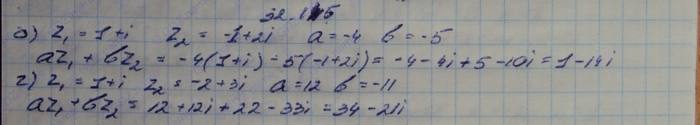 32.15
б) z₁ = 1+i z₂ = -1+2i a = -4 b = -5
az₁ + bz₂ = -4(1+i) - 5(-1+2i) = -4-4i+5-10i = 1-14i
г) z₁ = 1+i z₂ = -2+3i a = 12 b = -11
az₁ + bz₂ = 12+12i+22-33i = 34-21i